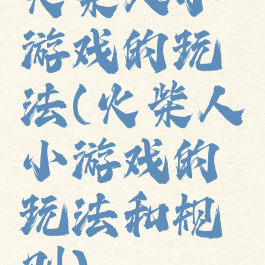 火柴人小
游戏的玩
法(火柴人
小游戏的
玩法和规
则)